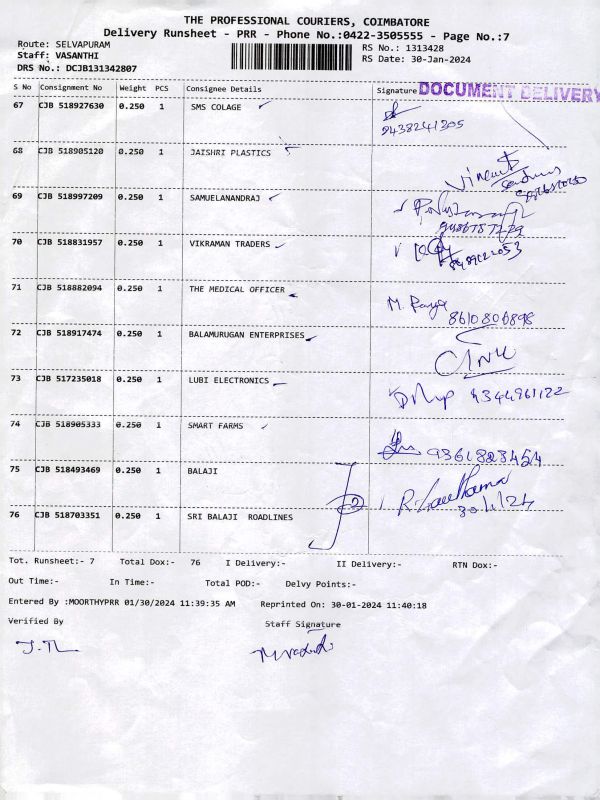 THE PROFESSIONAL COURIERS, COIMBATORE
Delivery Runsheet - PRR - Phone No.:0422-3505555 - Page No.:7
Route: SELVAPURAM
Staff: VASANTHI
DRS No.: DCJB131342807
RS No.: 1313428
RS Date: 30-Jan-2024
S No Consignment No Weight PCS Consignee Details Signature DOCUMENT DELIVERY
67 CJB 518927630 0.250 1 SMS COLAGE
9438241305
68 CJB 518905120 0.250 1 JAISHRI PLASTICS
69 CJB 518997209 0.250 1 SAMUELANANDRAJ
70 CJB 518831957 0.250 1 VIKRAMAN TRADERS
71 CJB 518882094 0.250 1 THE MEDICAL OFFICER
8610806898
72 CJB 518917474 0.250 1 BALAMURUGAN ENTERPRISES
73 CJB 517235018 0.250 1 LUBI ELECTRONICS
9344961122
74 CJB 518905333 0.250 1 SMART FARMS
9361823454
75 CJB 518493469 0.250 1 BALAJI
30/1/24
76 CJB 518703351 0.250 1 SRI BALAJI ROADLINES
Tot. Runsheet:- 7 Total Dox:- 76 I Delivery:- II Delivery:- RTN Dox:-
Out Time:- In Time:- Total POD:- Delvy Points:-
Entered By :MOORTHYPRR 01/30/2024 11:39:35 AM Reprinted On: 30-01-2024 11:40:18
Verified By Staff Signature